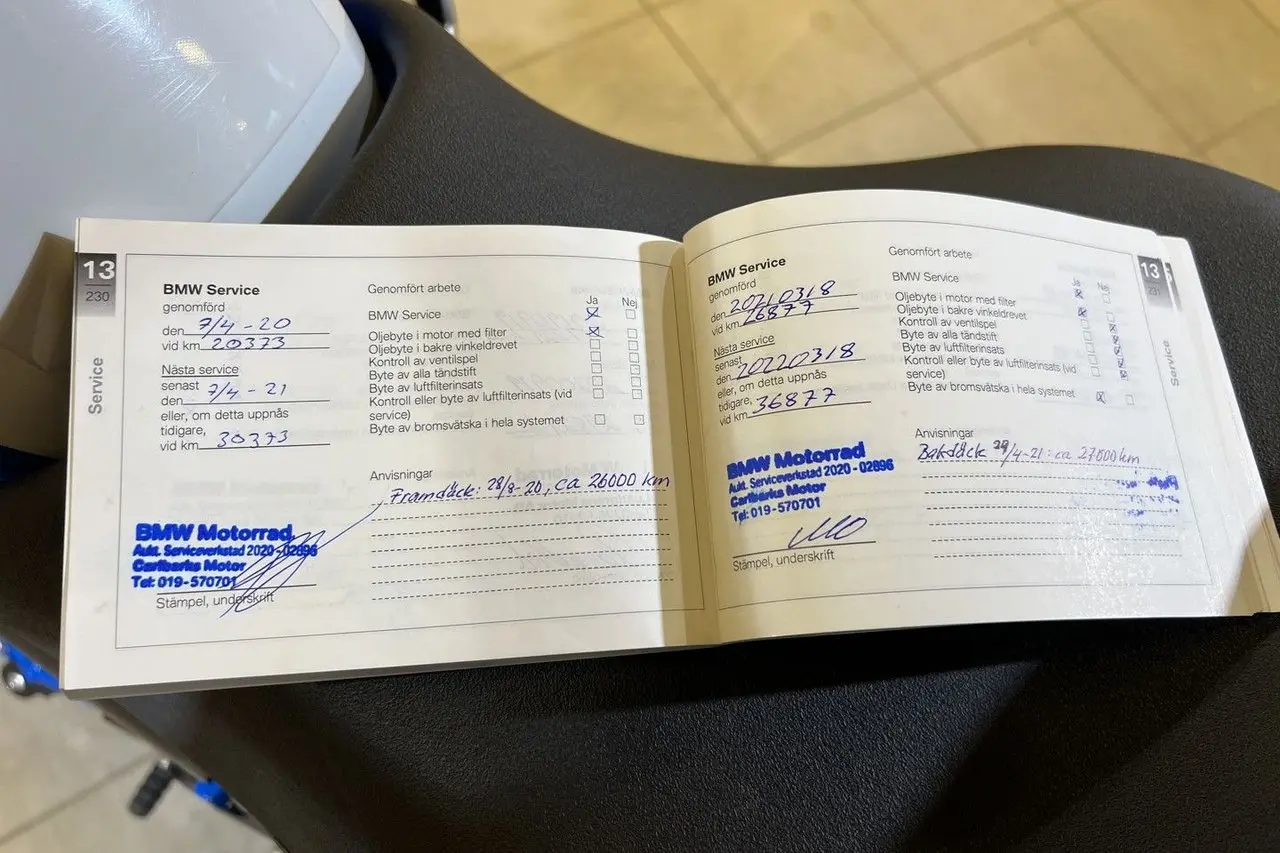 13
230
Service
BMW Service
genomförd
den 7/4 - 20
vid km 20373
Nästa service
senast
den 7/4 - 21
eller, om detta uppnås
tidigare,
vid km 30373
BMW Motorrad
Aukt. Serviceverkstad 2020 - 02896
Carlbarks Motor
Tel: 019 - 570701
Stämpel, underskrift
Genomfört arbete
Ja Nej
BMW Service
Oljebyte i motor med filter
Oljebyte i bakre vinkeldrevet
Kontroll av ventilspel
Byte av alla tändstift
Byte av luftfilterinsats
Kontroll eller byte av luftfilterinsats (vid
service)
Byte av bromsvätska i hela systemet
Anvisningar
Framdäck: 28/8-20, ca 26000 km
BMW Service
genomförd
den 20210318
vid km 26877
Nästa service
senast
den 20220318
eller, om detta uppnås
tidigare,
vid km 36877
BMW Motorrad
Aukt. Serviceverkstad 2020 - 02896
Carlbarks Motor
Tel: 019 - 570701
Stämpel, underskrift
Genomfört arbete
Ja Nej
BMW Service
Oljebyte i motor med filter
Oljebyte i bakre vinkeldrevet
Kontroll av ventilspel
Byte av alla tändstift
Byte av luftfilterinsats
Kontroll eller byte av luftfilterinsats (vid
service)
Byte av bromsvätska i hela systemet
Anvisningar
Bakdäck 29/4-21: ca 27600 km
13
231
Service